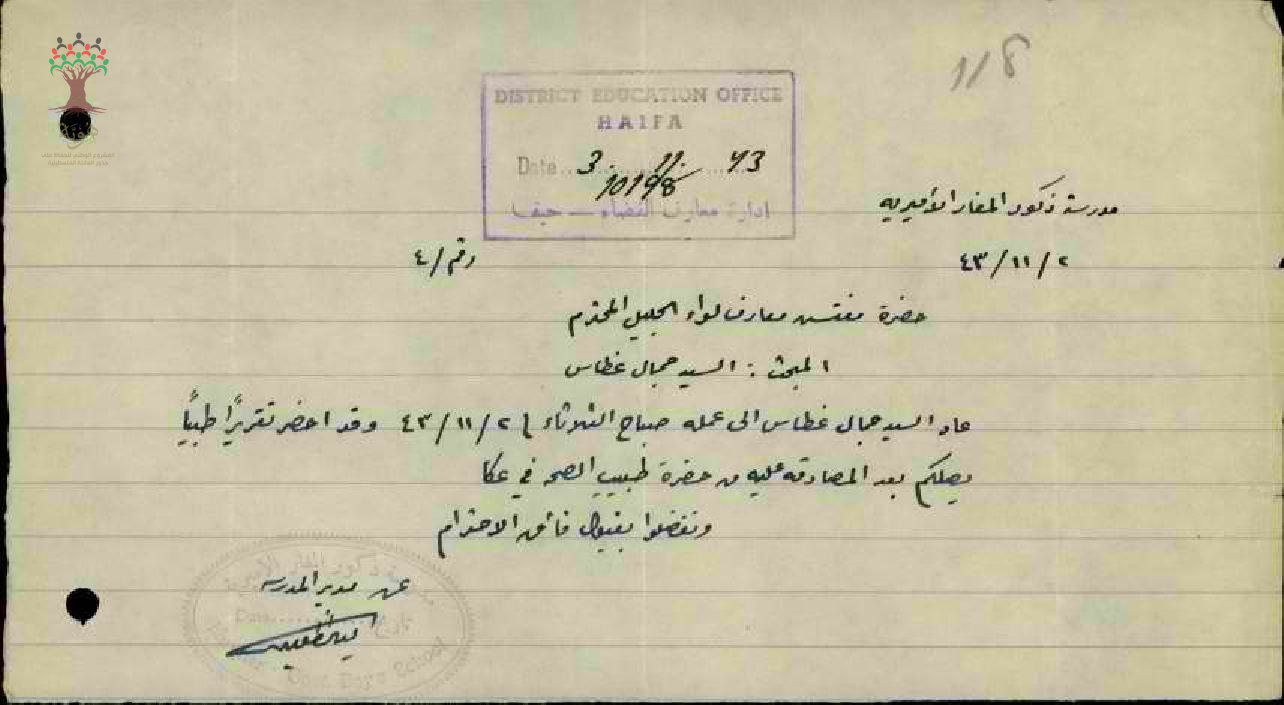 118
DISTRICT EDUCATION OFFICE
HAIFA
Date 3. 11. 43
10198
ادارة معارف القضاء — حيفا
مدرسة ذكور المغار الأميريه
٢ / ١١ / ٤٣
رقم / ٤
حضرة مفتش معارف لواء الجليل المحترم
المبحث : السيد جمال غطاس
عاد السيد جمال غطاس الى عمله صباح الثلاثاء في ٢ / ١١ / ٤٣ وقد احضر تقريرًا طبيًا
يصلكم بعد المصادقه عليه من حضرة طبيب الصحه في عكا
وتفضلوا بقبول فائق الاحترام
عن مدير المدرسه
مدرسة ذكور المغار الأميرية
Date تاريخ
Govt. Boys School